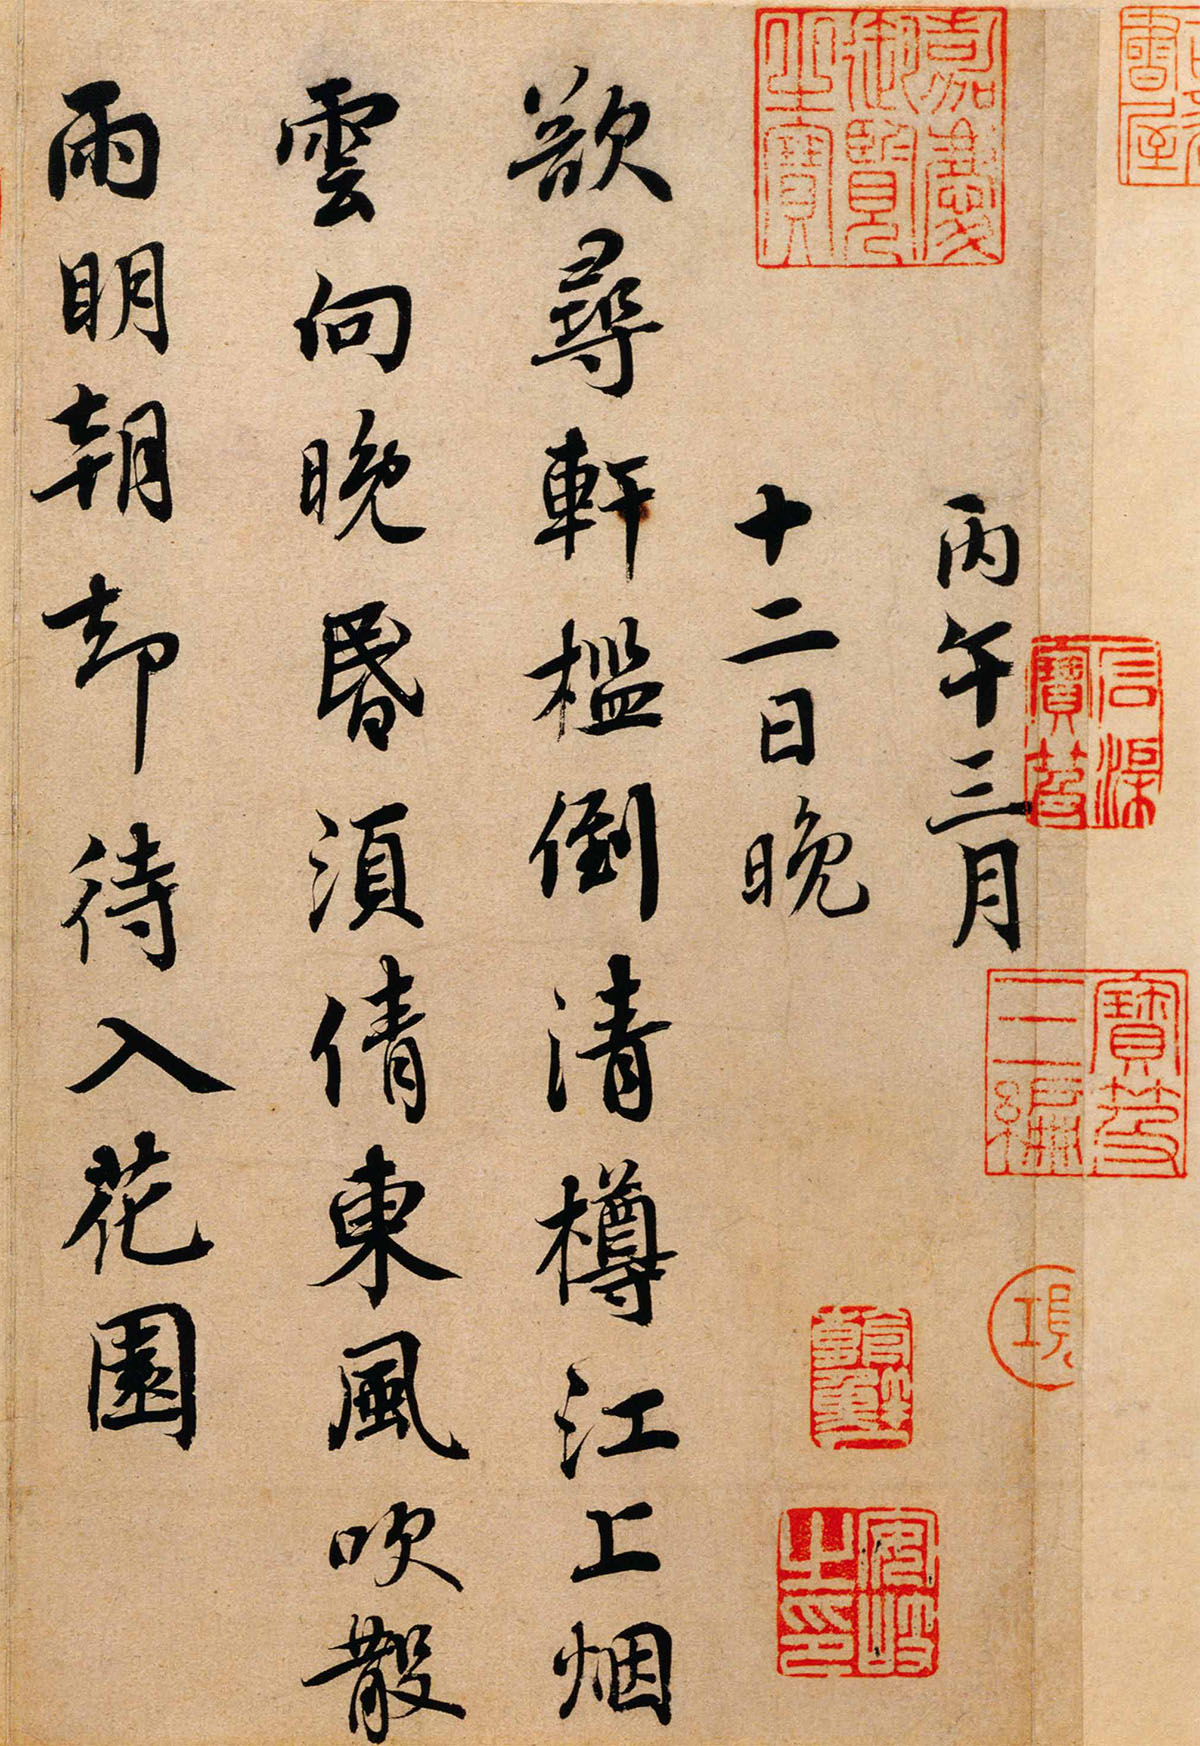 丙午三月
十二日晚
欲尋軒檻倒清樽江上烟
雲向晚昏須倩東風吹散
雨明朝却待入花園
嘉慶御覽之寶
寶笈三編
安岐之印